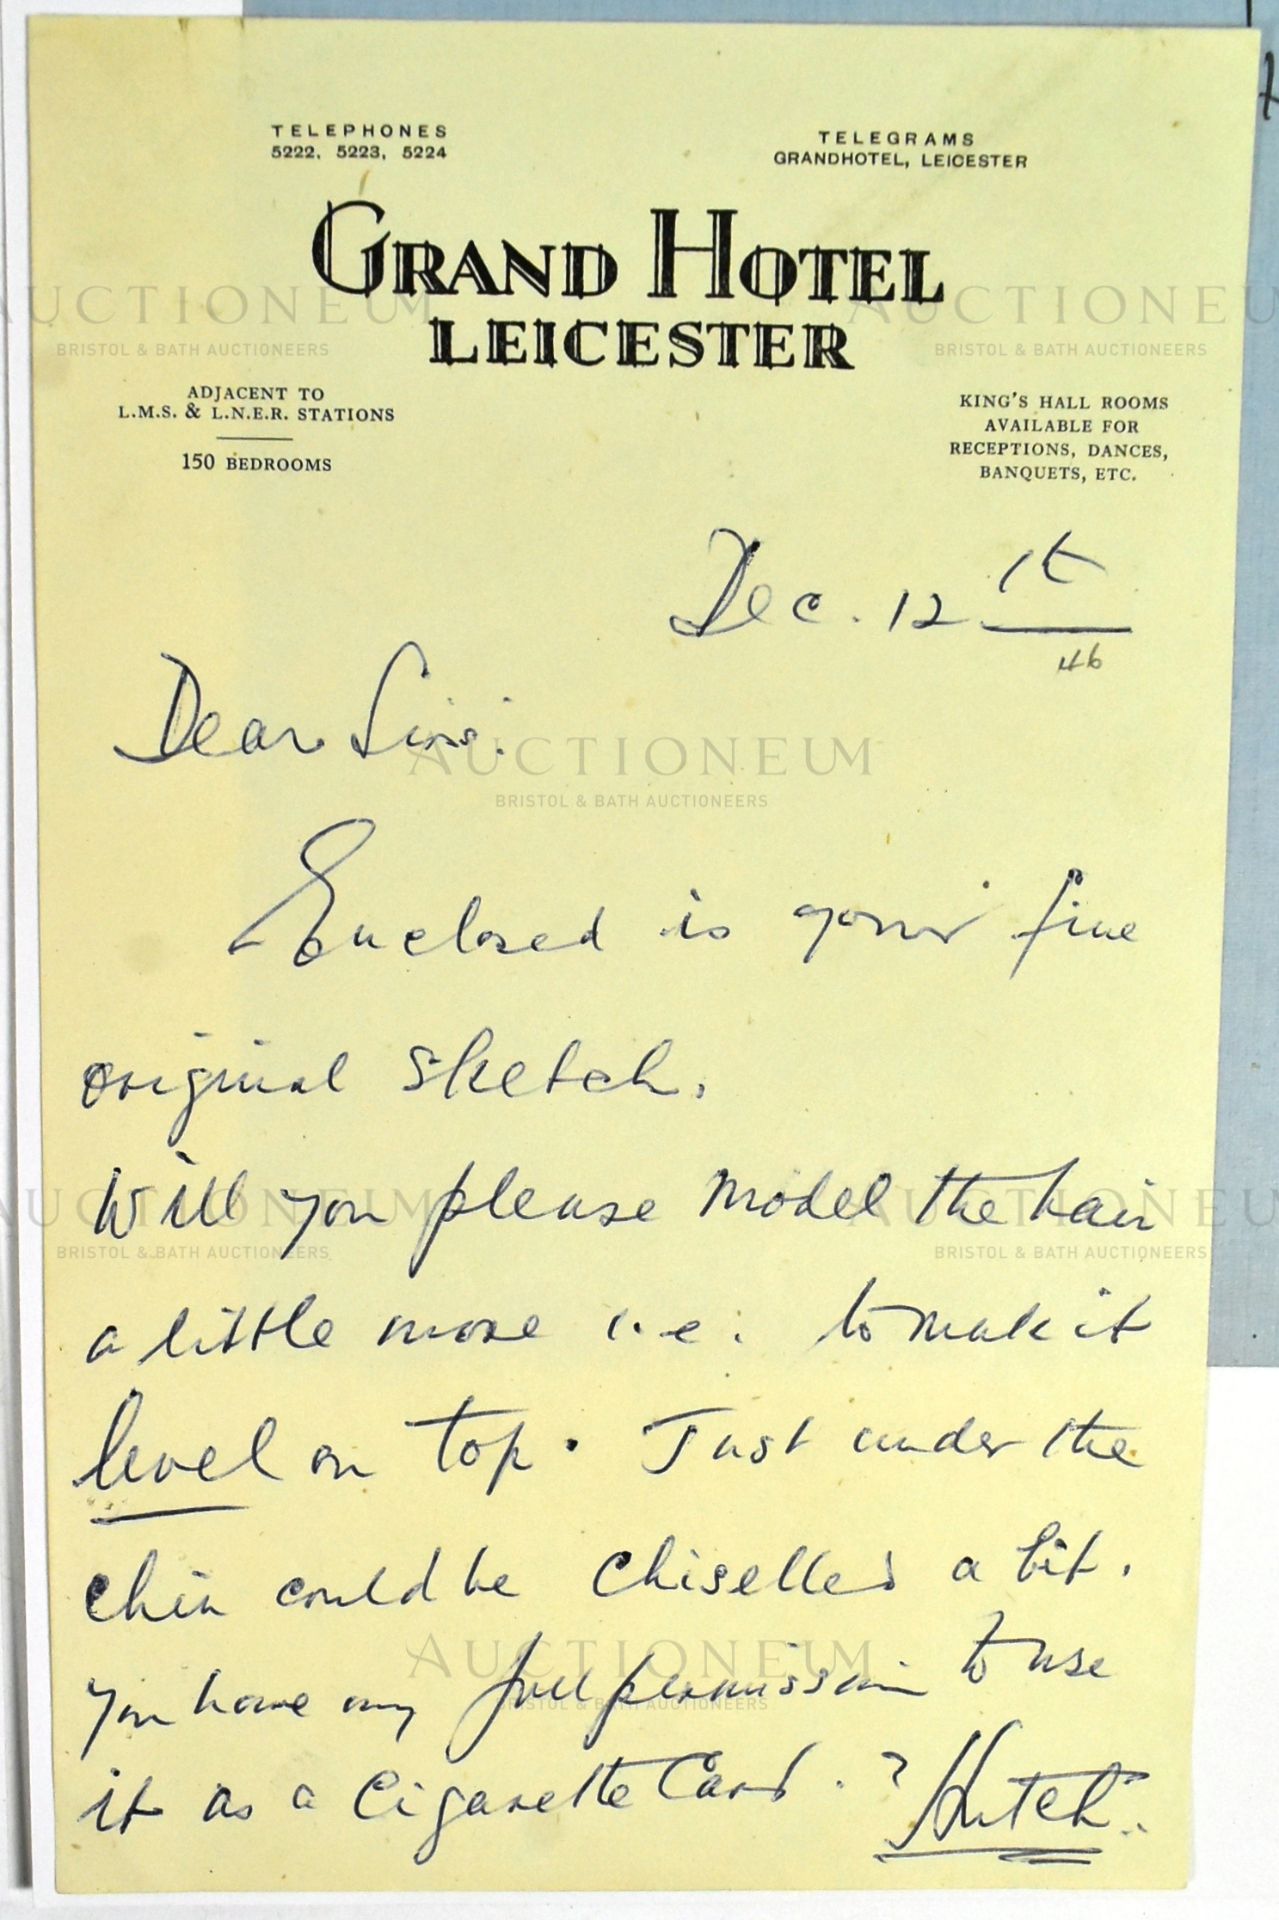 TELEPHONES
5222, 5223, 5224
TELEGRAMS
GRANDHOTEL, LEICESTER
GRAND HOTEL
LEICESTER
ADJACENT TO
L.M.S. & L.N.E.R. STATIONS
150 BEDROOMS
KING'S HALL ROOMS
AVAILABLE FOR
RECEPTIONS, DANCES,
BANQUETS, ETC.
Dec. 12th
46
Dear Sirs:
Enclosed is your fine
original sketch.
Will you please model the hair
a little more i.e. to make it
level on top. Just under the
chin could be chiselled a bit.
You have my full permission to use
it as a Cigarette Card.
Hutch.
AUCTIONEUM
BRISTOL & BATH AUCTIONEERS
AUCTIONEUM
BRISTOL & BATH AUCTIONEERS
AUCTIONEUM
BRISTOL & BATH AUCTIONEERS
AUCTIONEUM
BRISTOL & BATH AUCTIONEERS
AUCTIONEUM
BRISTOL & BATH AUCTIONEERS
AUCTIONEUM
BRISTOL & BATH AUCTIONEERS